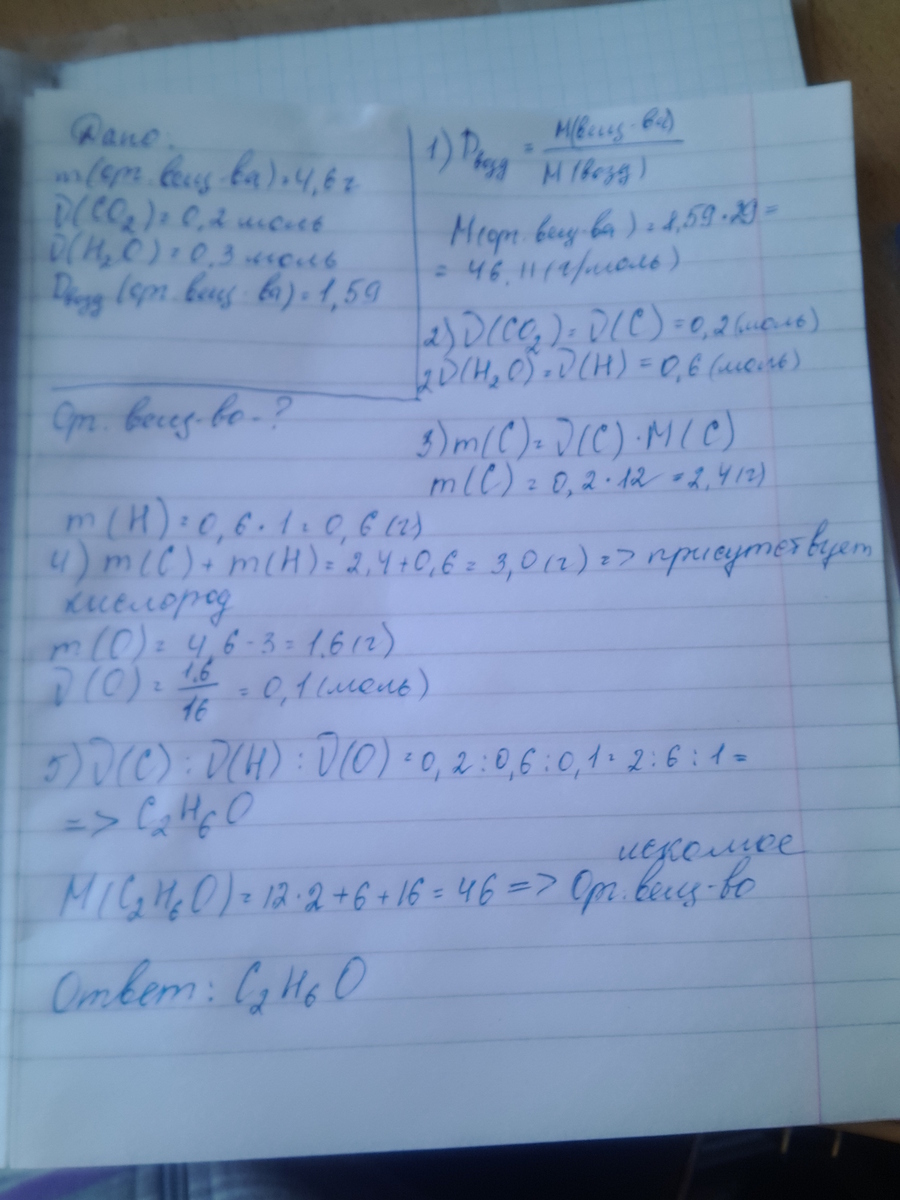 Дано:
m(орг. вещ-ва) = 4,6 г
ν(CO₂) = 0,2 моль
ν(H₂O) = 0,3 моль
Dвозд (орг. вещ-ва) = 1,59
Орг. вещ-во - ?
1) Dвозд = M(вещ-ва) / M(возд)
M(орг. вещ-ва) = 1,59 · 29 =
= 46,11 (г/моль)
2) ν(CO₂) = ν(C) = 0,2 (моль)
2ν(H₂O) = ν(H) = 0,6 (моль)
3) m(C) = ν(C) · M(C)
m(C) = 0,2 · 12 = 2,4 (г)
m(H) = 0,6 · 1 = 0,6 (г)
4) m(C) + m(H) = 2,4 + 0,6 = 3,0 (г) => присутствует
кислород
m(O) = 4,6 - 3 = 1,6 (г)
ν(O) = 1,6 / 16 = 0,1 (моль)
5) ν(C) : ν(H) : ν(O) = 0,2 : 0,6 : 0,1 = 2 : 6 : 1 =
=> C₂H₆O
искомое
M(C₂H₆O) = 12 · 2 + 6 + 16 = 46 => Орг. вещ-во
Ответ: C₂H₆O